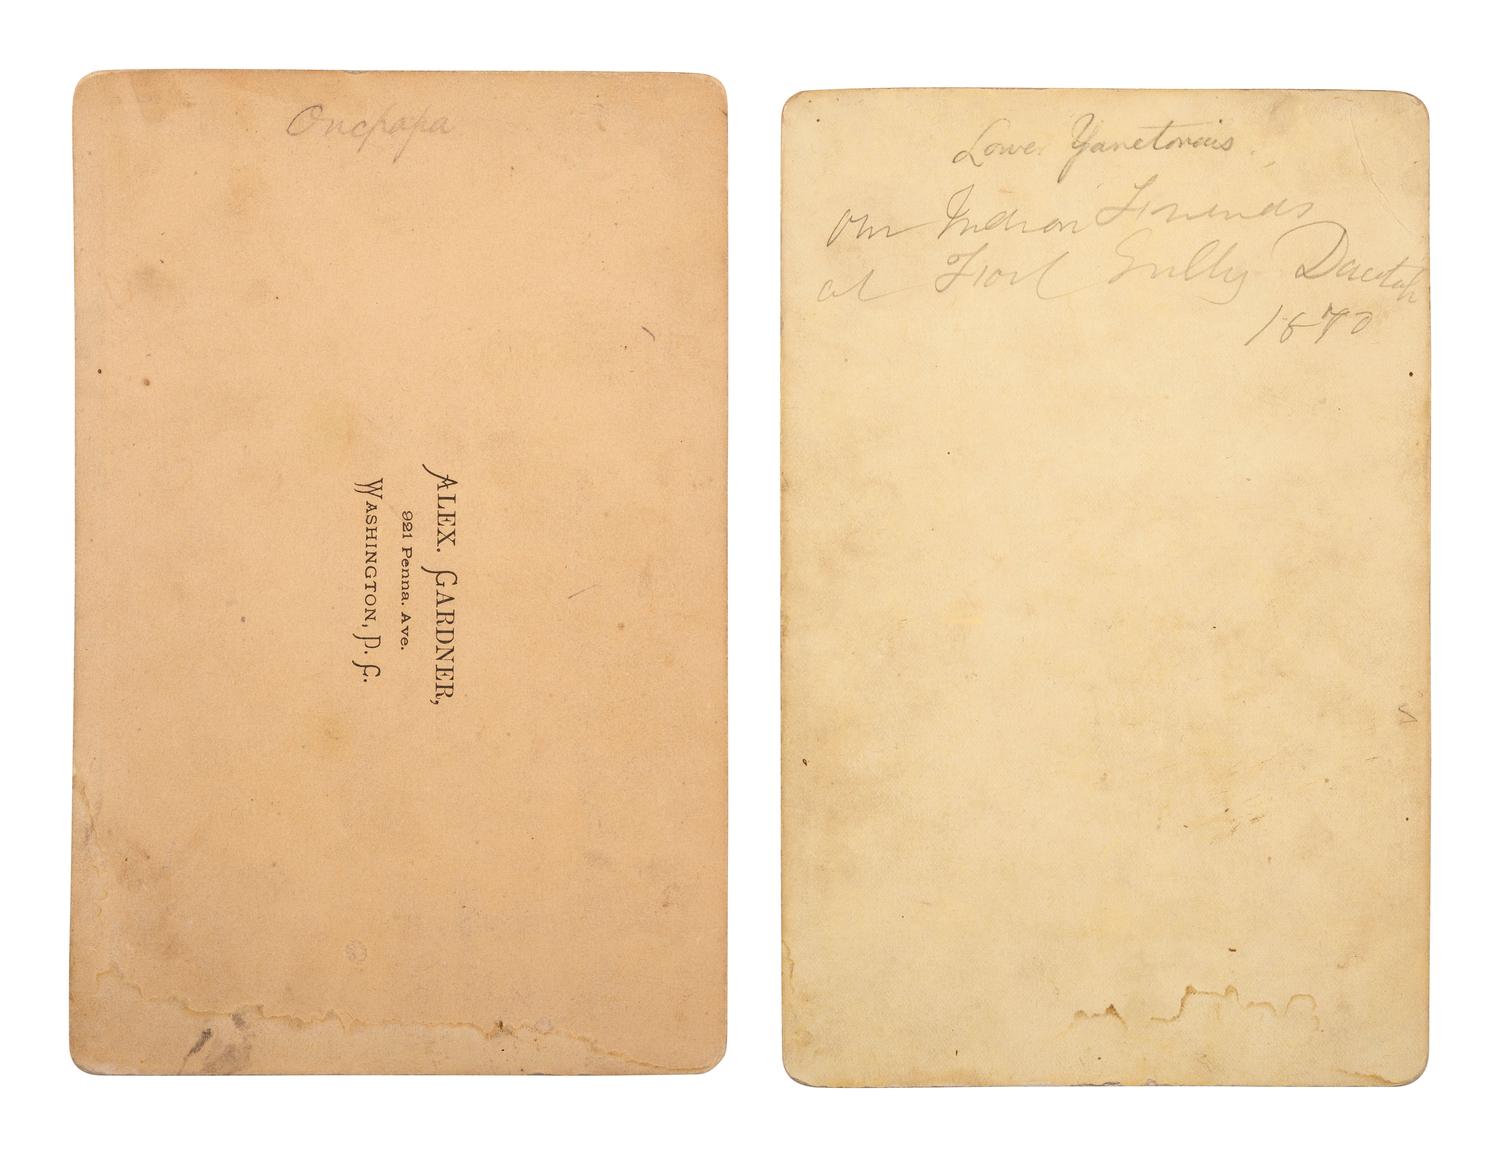 Oncpapa
ALEX. GARDNER,
921 Penna. Ave.
WASHINGTON, D. C.
Lower Yanctonais
Our Indian Friends
at Fort Sully Dacotah
1870